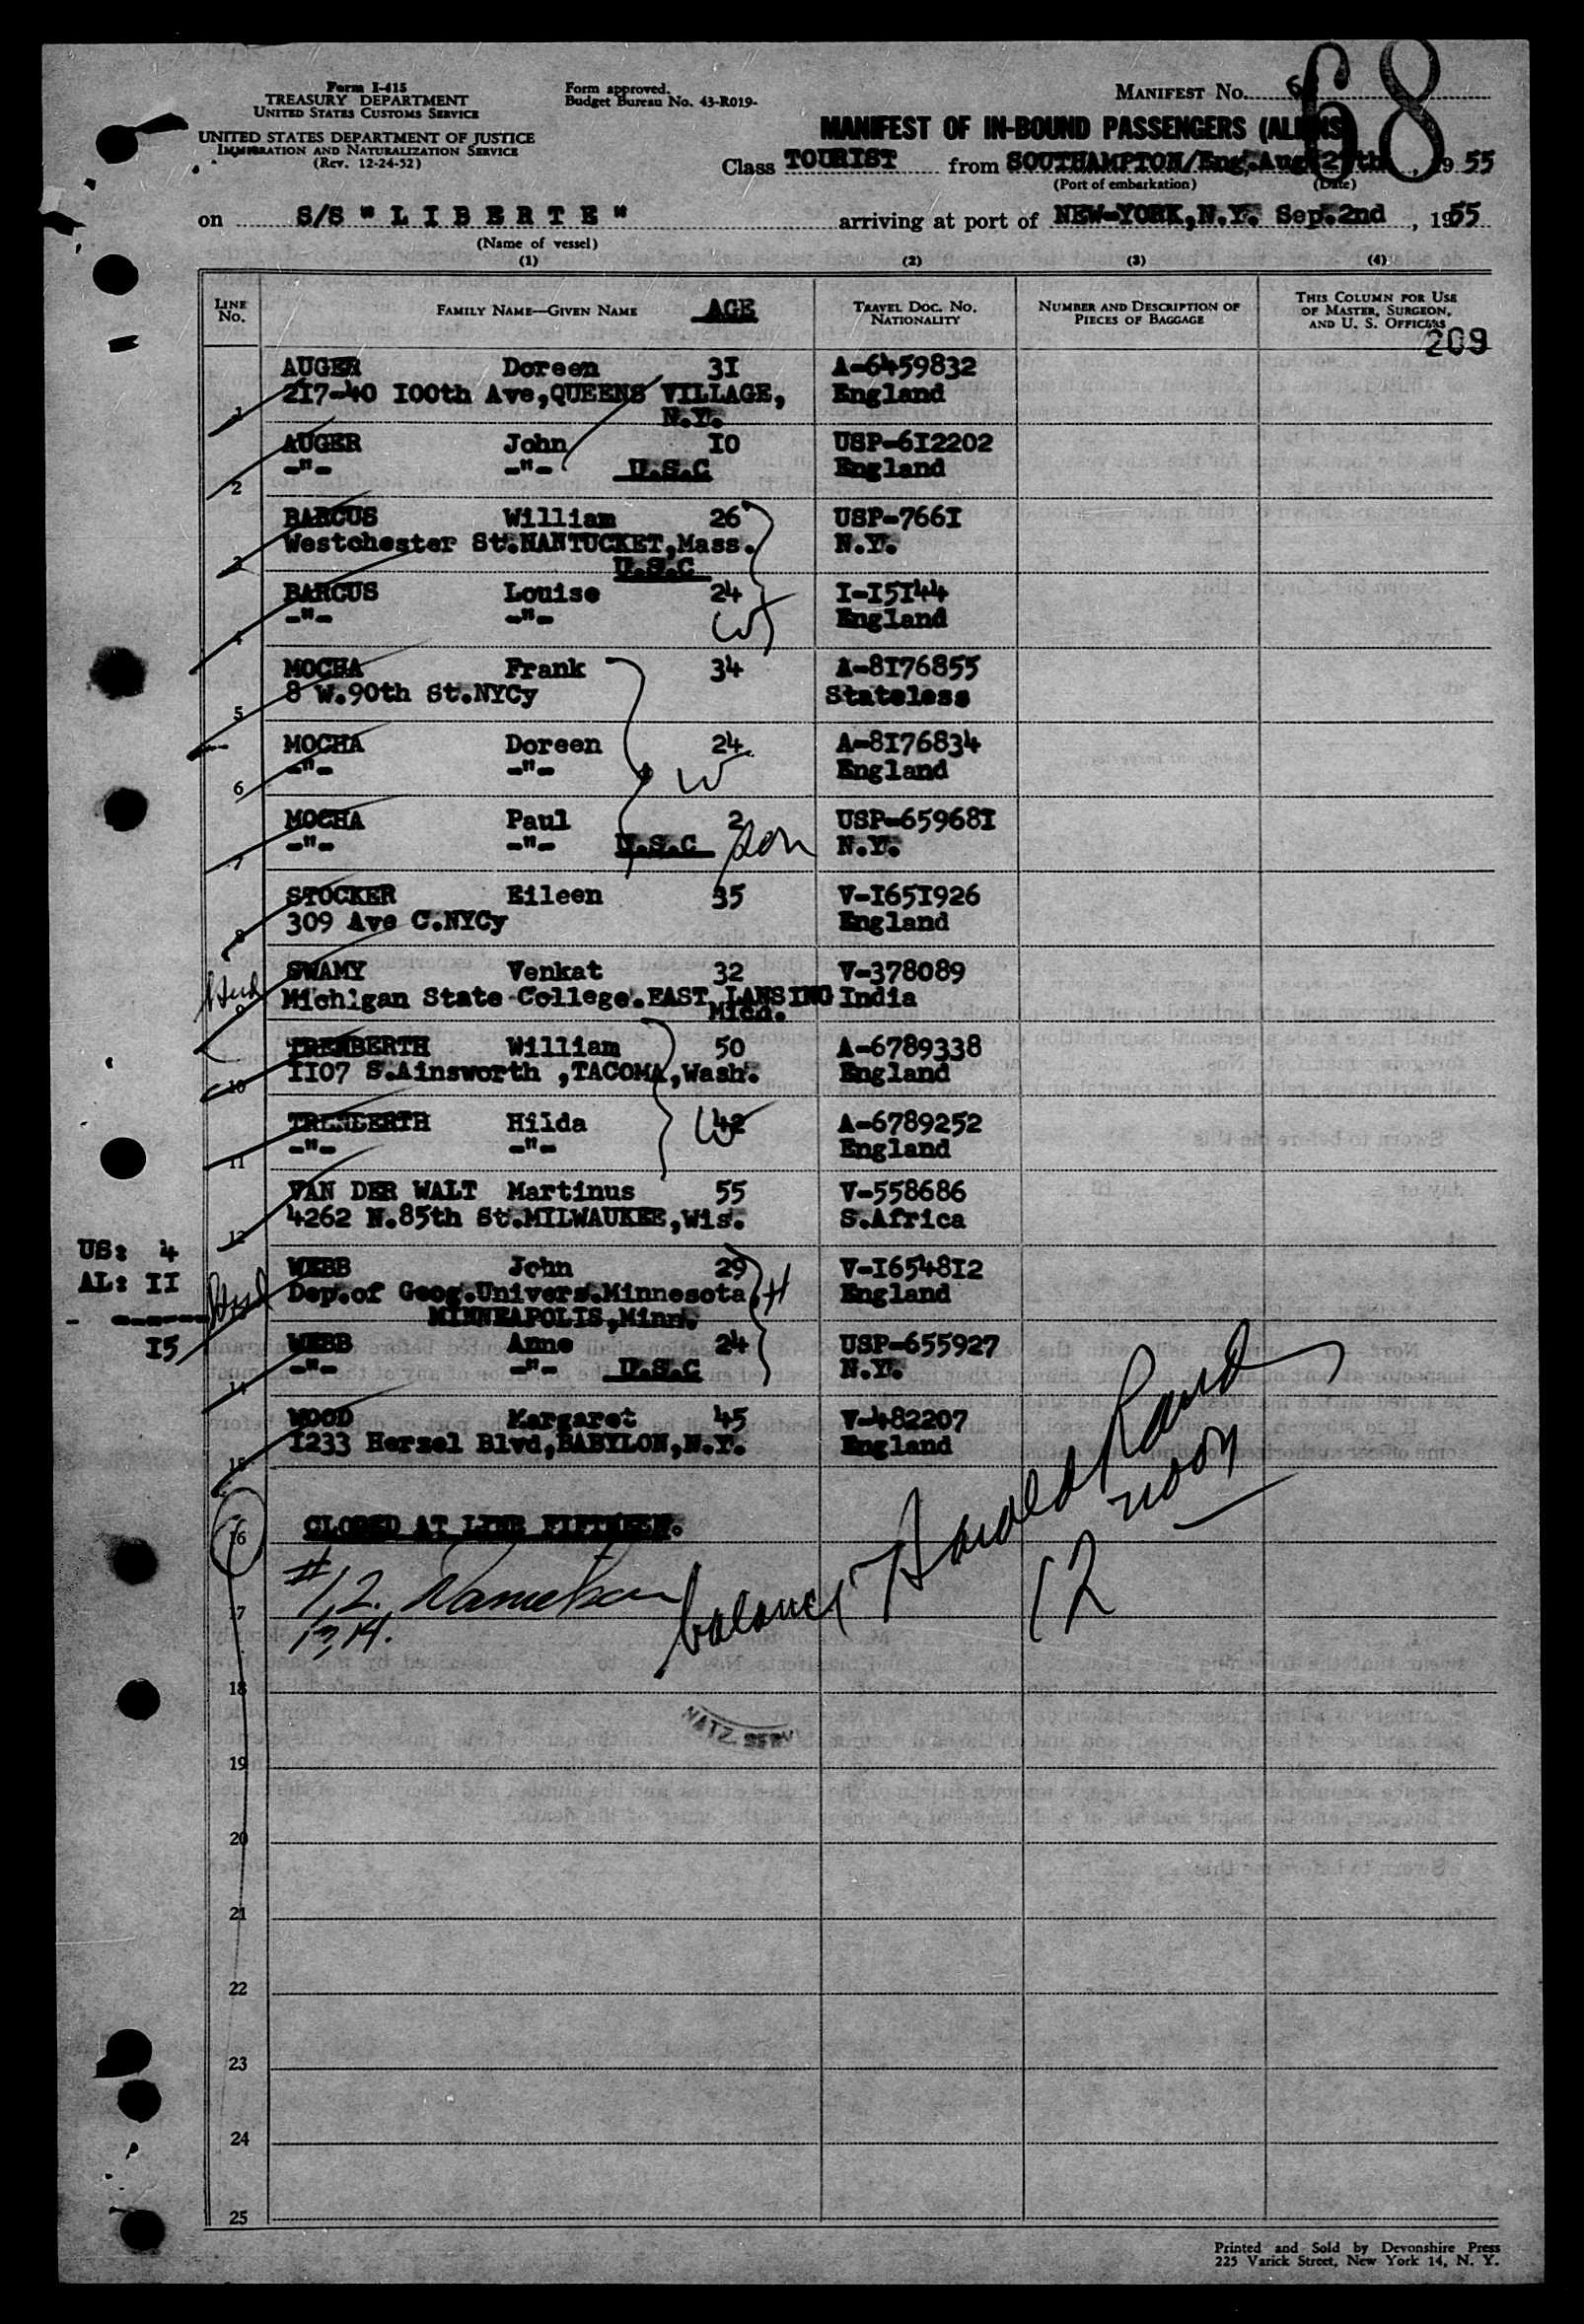 Form I-415
TREASURY DEPARTMENT
UNITED STATES CUSTOMS SERVICE
UNITED STATES DEPARTMENT OF JUSTICE
IMMIGRATION AND NATURALIZATION SERVICE
(Rev. 12-24-52)
Form approved.
Budget Bureau No. 43-R019-
MANIFEST No.
68
MANIFEST OF IN-BOUND PASSENGERS (ALIENS)
Class TOURIST from SOUTHAMPTON/Eng, Aug , 1955
(Port of embarkation) (Date)
on S/S " L I B E R T E " arriving at port of NEW-YORK,N.Y. Sep.2nd , 1955
(Name of vessel)
(1) (2) (3) (4)
LINE No. FAMILY NAME—GIVEN NAME AGE TRAVEL DOC. NO. NATIONALITY NUMBER AND DESCRIPTION OF PIECES OF BAGGAGE THIS COLUMN FOR USE OF MASTER, SURGEON, AND U. S. OFFICERS
209
AUGER Doreen 3I A-6459832
1 2I7-40 I00th Ave,QUEENS VILLAGE, England
N.Y.
AUGER John I0 USP-6I2202
2 -"- -"- U.S.C England
BARCUS William 26 USP-766I
3 Westchester St.NANTUCKET,Mass. N.Y.
U.S.C
BARCUS Louise 24 I-I5I44
4 -"- -"- W England
MOCHA Frank 34 A-8I76855
5 8 W.90th St.NYCy Stateless
MOCHA Doreen 24 A-8I76834
6 -"- -"- W England
MOCHA Paul 2 USP-65968I
7 -"- -"- U.S.C son N.Y.
STOCKER Eileen 35 V-I65I926
8 309 Ave C.NYCy England
SWAMY Venkat 32 V-378089
9 Michigan State College.EAST LANSING India
Mich.
TRENBERTH William 50 A-6789338
10 II07 S.Ainsworth ,TACOMA,Wash. England
TRENBERTH Hilda 42 W A-6789252
11 -"- -"- England
VAN DER WALT Martinus 55 V-558686
12 4262 N.85th St.MILWAUKEE,Wis. S.Africa
US: 4
AL: II
I5
WEBB John 29 V-I6548I2
Dep.of Geog.Univers.Minnesota, H England
MINNEAPOLIS,Minn.
WEBB Anne 24 USP-655927
14 -"- -"- U.S.C N.Y.
WOOD Margaret 45 V-482207
15 I233 Herzel Blvd,BABYLON,N.Y. England
16 CLOSED AT LINE FIFTEEN.
#1,2.
13,14.
balance Harold Rand
12 noon
17
18
NATZ. SERV
19
20
21
22
23
24
25
Printed and Sold by Devonshire Press
225 Varick Street, New York 14, N. Y.